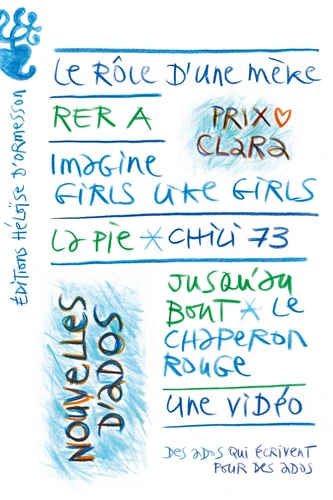 Éditions Héloïse d'Ormesson
Le Rôle d'une mère
RER A
PRIX
CLARA
Imagine
Girls like Girls
La Pie * Chili 73
Jusqu'au
Bout * Le
Chaperon
Rouge
Une vidéo
NOUVELLES
D'ADOS
Des ados qui écrivent
pour des ados